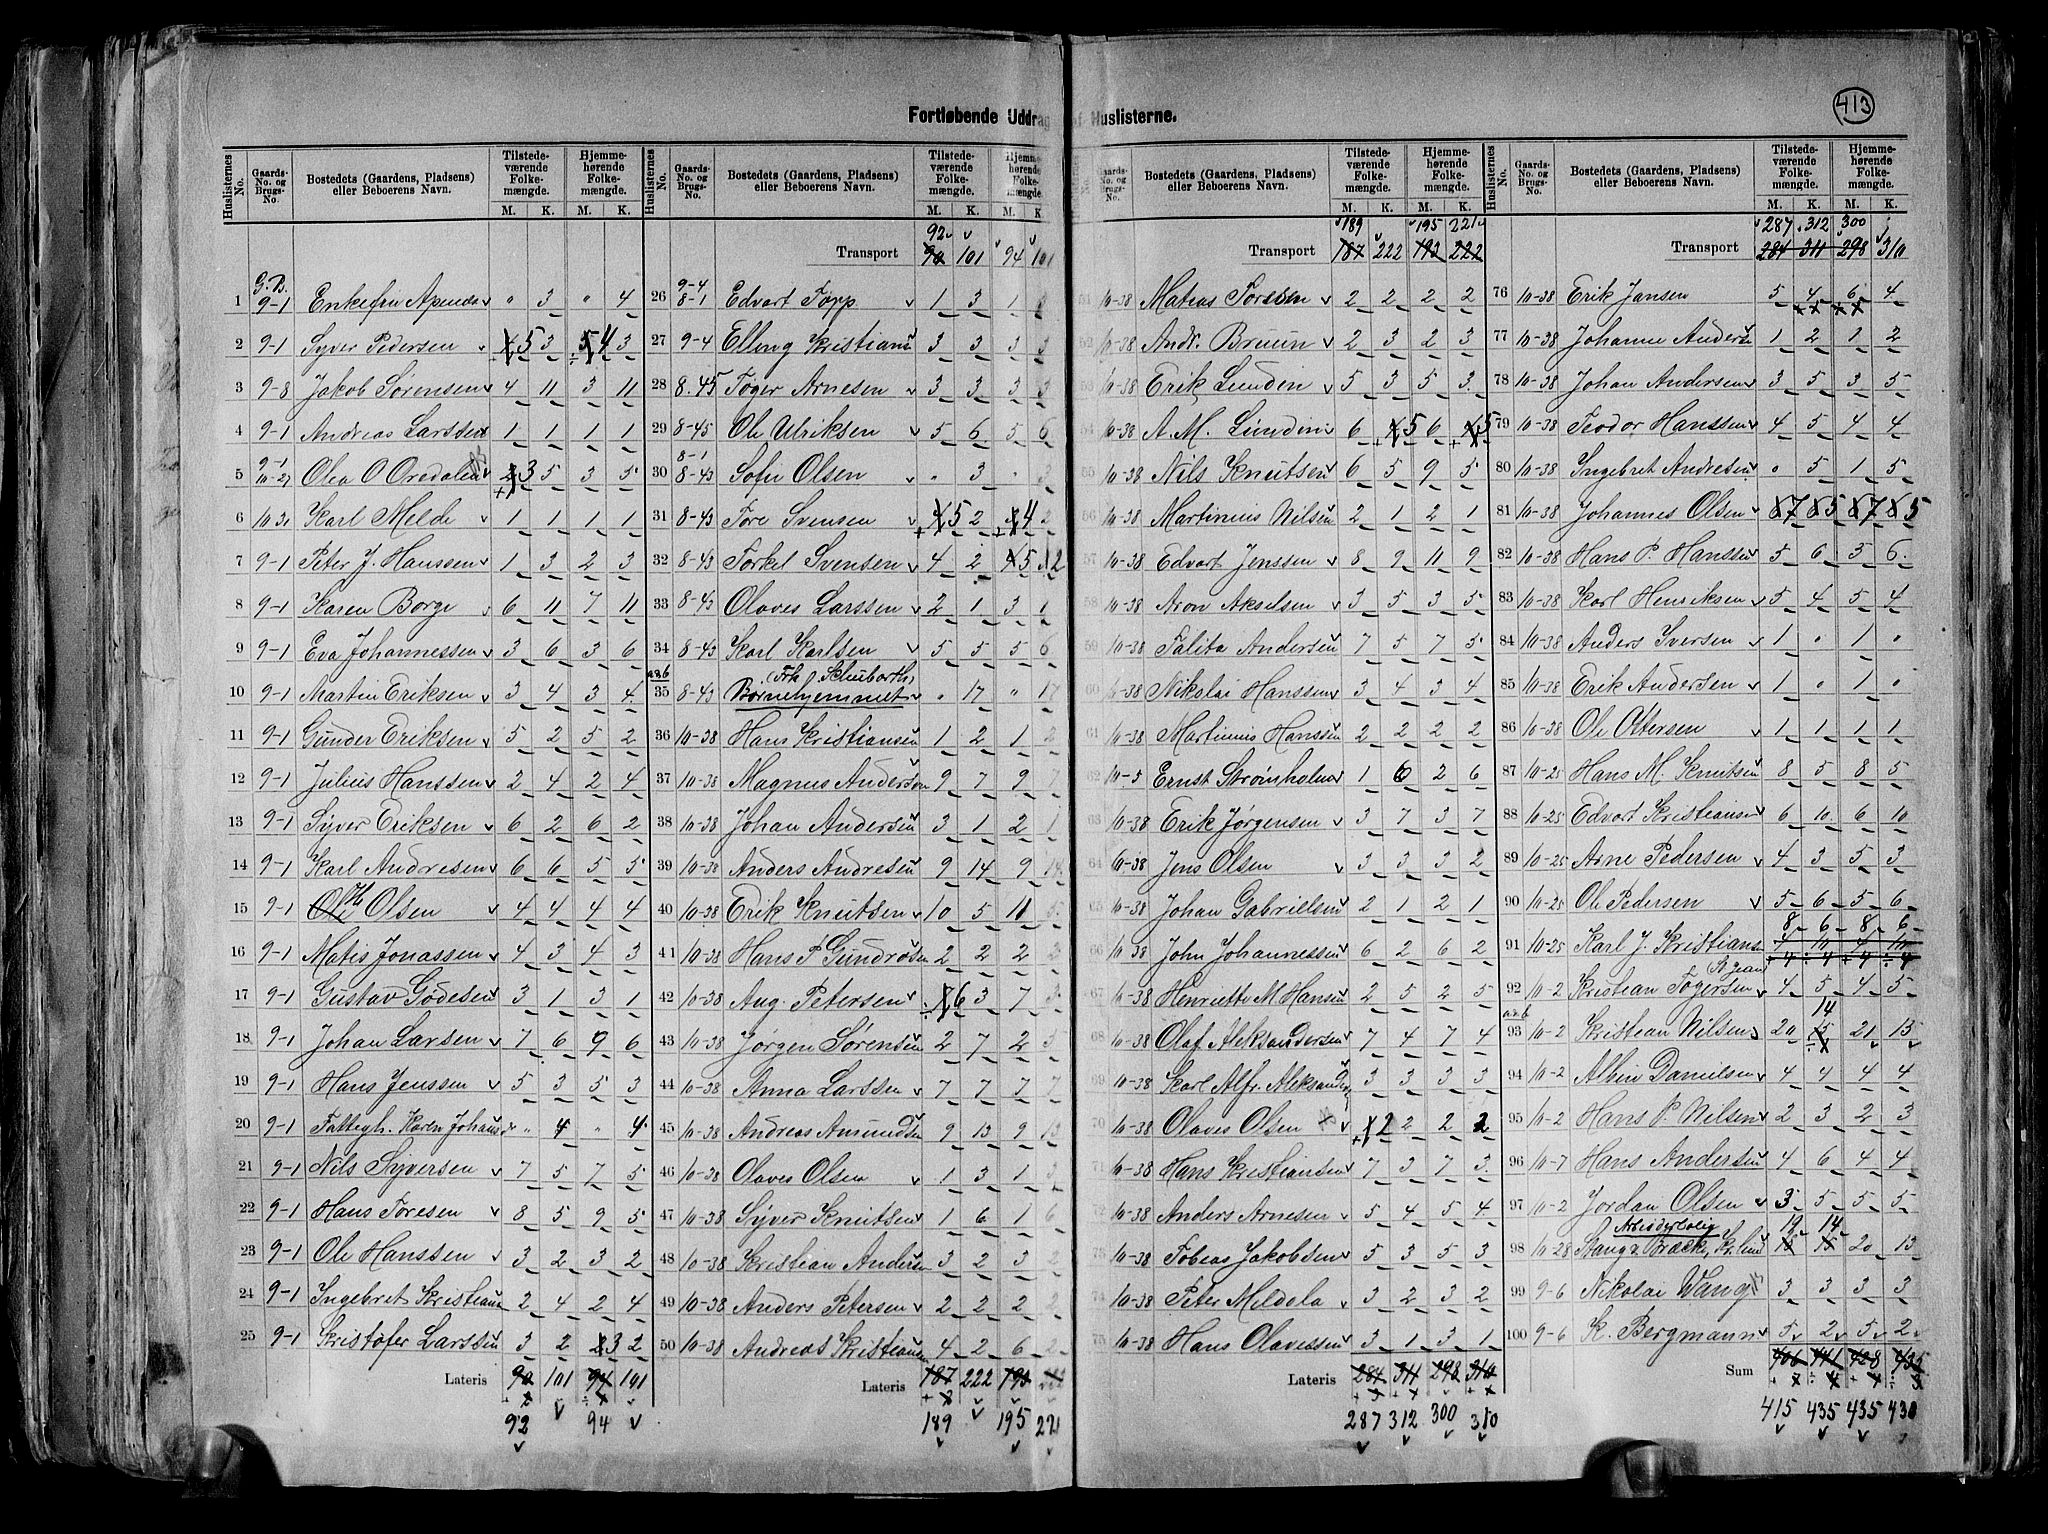 413
Fortløbende Uddrag af Huslisterne.
Huslisternes No. Gaards-No. og Brugs-No. Bostedets (Gaardens, Pladsens) eller Beboerens Navn. Tilstedeværende Folkemængde. Hjemmehørende Folkemængde.
M. K. M. K.
G. B.
1 9-1 Enkefru " 3 " 4
2 9-1 Syver Pedersen 5 3 4 3
3 9-8 Jakob Sørensen 4 11 3 11
4 9-1 Andreas Larssen 1 1 1 1
5 9-1 10-21 Olea O 3 5 3 5
6 10 31 Karl Melde 1 1 1 1
7 9-1 Peter J. Hanssen 1 3 2 3
8 9-1 Karen Borge 6 11 7 11
9 9-1 Eva Johannessen 3 6 3 6
10 9-1 Martin Eriksen 3 4 3 4
11 9-1 Gunder Eriksen 5 2 5 2
12 9-1 Julius Hanssen 2 4 2 4
13 9-1 Syver Eriksen 6 2 6 2
14 9-1 Karl Andresen 6 6 5 5
15 9-1 H Olsen 4 4 4 4
16 9-1 Matis Jonassen 4 3 4 3
17 9-1 Gustav Gødesen 3 1 3 1
18 9-1 Johan Larsen 7 6 9 6
19 9-1 Hans Jenssen 5 3 5 3
20 9-1 Fattigh. Karen Johans " 4 " 4
21 9-1 Nils Syversen 7 5 7 5
22 9-1 Hans Toresen 8 5 9 5
23 9-1 Ole Hanssen 3 2 3 2
24 9-1 Ingebret Kristians 2 4 2 4
25 9-1 Kristofer Larssen 3 2 3 2
Lateris 90 101 94 101
92 94
92
Transport 90 101 94 101
26 9-4 8-1 Edvart Topp 1 3 1
27 9-4 Elling Kristians 3 3 3 3
28 8-45 Toger Arnesen 3 3 3 3
29 8-45 Ole Ulriksen 5 6 5 6
30 8-1 8-43 Sofu Olsen " 3 " 3
31 8-43 Tore Svensen 5 2 4 2
32 8-43 Torkel Svensen 4 2 5 2
33 8-43 Olaves Larssen 2 1 3 1
34 8-43 Karl Karlsen 5 5 5 6
a&b (Frk Schuborth)
35 8-43 Børnehjemmet " 17 " 17
36 10-38 Hans Kristiansen 1 2 1 2
37 10-38 Magnus Anderson 9 7 9 7
38 10-38 Johan Andersen 3 1 2 1
39 10-38 Anders Andresen 9 14 9 14
40 10-38 Erik Knutsen 10 5 11 5
41 10-38 Hans P Gundrosen 2 2 2 3
42 10-38 Aug. Petersen 6 3 7 3
43 10-38 Jørgen Sørensen 2 7 2 5
44 10-38 Anna Larssen 7 7 7 7
45 10-38 Andreas Amundsen 9 13 9 13
46 10-38 Olaves Olsen 1 3 1 3
47 10-38 Syver Knutsen 1 6 1 6
48 10-38 Kristian Andersen 3 2 3 2
49 10-38 Anders Petersen 2 2 2 2
50 10-38 Andreas Kristiansen 4 2 6 2
Lateris 187 222 193
189 195 221
189 195 221
Transport 187 222 193 222
51 10-38 Matias Torsen 2 2 2 2
52 10-38 Andr. Bruun 2 3 2 3
53 10-38 Erik Lundin 5 3 5 3
54 10-38 A. M. Lundin 6 5 6 5
55 10-38 Nils Knutsen 6 5 9 5
56 10-38 Martinius Nilsen 2 1 2 1
57 10-38 Edvart Jenssen 8 9 11 9
58 10-38 Aron Akselsen 3 5 3 5
59 10-38 Talita Andersen 7 5 7 5
60 10-38 Nikolai Hanssen 3 4 3 4
61 10-38 Martinius Hanssen 2 2 2 2
62 10-5 Ernst Strømholm 1 6 2 6
63 10-38 Erik Jørgensen 3 7 3 7
64 10-38 Jens Olsen 3 3 3 2
65 10-38 Johan Gabrielsen 2 1 2 1
66 10 38 John Johannessen 6 2 6 2
67 10-38 Henriette M Hansen 2 5 2 5
68 10-38 Olaf Aleksandersen 7 4 7 4
69 10-38 Karl Alfr. Aleksanders 3 3 3 3
70 10-38 Olaves Olsen 2 2 2 2
71 10-38 Hans Kristiansen 7 3 7 3
72 10-38 Anders Arnesen 5 4 5 4
73 10-38 Tobias Jakobsen 5 3 5 3
74 10-38 Peter Meldola 3 2 3 2
75 10-38 Hans Olavessen 3 1 3 1
Lateris 284 311 298 310
287 312 300 310
287 312 300
Transport 284 311 298 310
76 10-38 Erik Jansen 5 4 6 4
77 10-38 Johanne Anders 1 2 1 2
78 10-38 Johan Andersen 3 5 3 5
79 10-38 Teodor Hanssen 4 5 4 4
80 10-38 Ingebret Andresen " 5 1 5
81 10-38 Johannes Olsen 7 5 7 5
82 10-38 Hans P. Hanssen 5 6 5 6
83 10-38 Karl Henriksen 5 4 5 4
84 10-38 Anders Iversen 1 " 1 "
85 10-38 Erik Andersen 1 " 1 "
86 10-38 Ole Ottersen 1 1 1 1
87 10-25 Hans M. Knutsen 8 5 8 5
88 10-25 Edvart Kristiansen 6 10 6 10
89 10-25 Arne Pedersen 4 3 5 3
90 10-25 Ole Pedersen 5 6 5 6
91 10-25 Karl J. Kristians 8 6 8 6
92 10-2 Kristian Togersen 4 5 4 5
a&b
93 10-2 Kristian Nilsen 20 14 21 15
94 10-2 Albin Danielsen 4 4 4 4
95 10-2 Hans P. Nilsen 2 3 2 3
96 10-7 Hans Andersen 4 6 4 4
97 10-2 Jordan Olsen 3 5 5 5
Arbiderbolig
98 10-28 Stang 19 14 20 13
99 9-6 Nikolai Wang 3 3 3 3
100 9-6 K. Bergmann 5 2 5 2
Sum 406 441 428 435
415 435 435 430